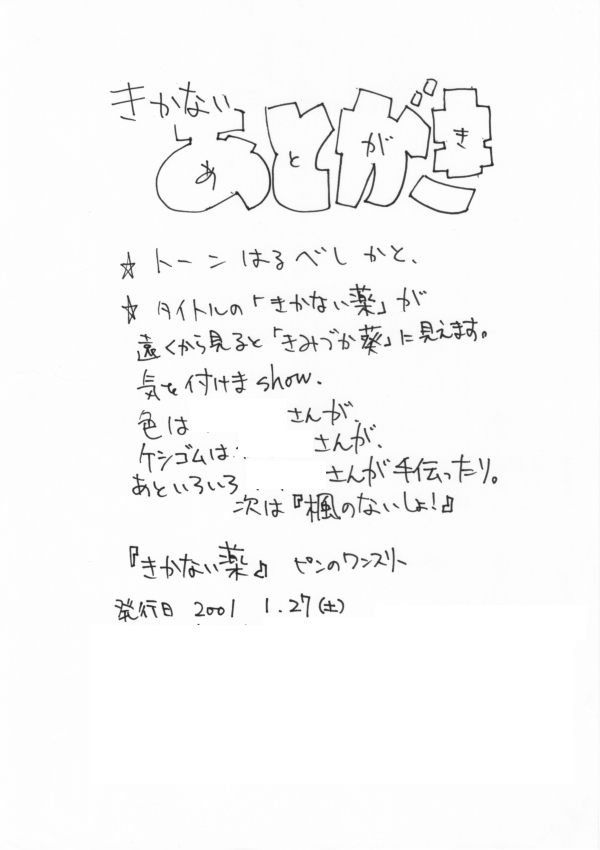 きかない
あとがき
☆ トーンはるべしかと、
☆ タイトルの「きかない薬」が
遠くから見ると「きみづか葵」に見えます。
気を付けまshow.
色は さんが、
ケシゴムは さんが、
あといろいろ さんが手伝ったり。
次は『楓のないしょ!』
『きかない薬』 ピンのワンスリー
発行日 2001 1.27(土)